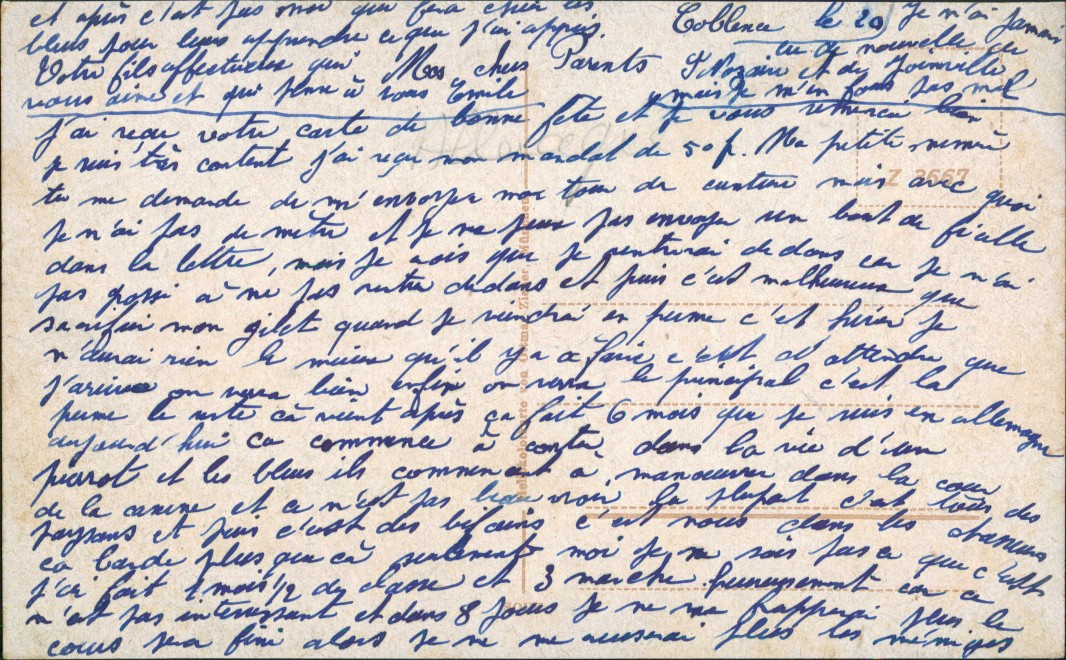 Coblence le 20
Mes chers Parents
j'ai reçu votre carte de bonne fête et je vous remercie bien
je suis très content j'ai reçu mon mandat de 50 f. Ma petite mémère
tu me demande de m'envoyer mon tour de ceinture mais avec quoi
je n'ai pas de mètre et je ne peux pas envoyer un bout de ficelle
dans la lettre, mais je vois que je rentrerai dedans car je n'ai
pas grossi à ne pas rentrer dedans et puis c'est malheureux que
sacrifier mon gilet quand je viendrai en perme c'est hiver je
n'aurai rien le mieux qu'il y a à faire c'est d'attendre que
j'arrive on verra bien enfin on verra le principal c'est la
perme le reste ca vient après ça fait 6 mois que je suis en allemagne
aujourd'hui ca commence à compter dans la vie d'un
pierrot et les bleus ils commencent a manoeuvrer dans la cour
de la caserne et ce n'est pas beau voir la plupart c'est tous des
paysans et puis c'est des bificins c'est nous dans les chasseurs
ca barde plus que cà seulement moi je ne sais pas ce que c'est
j'ai fait 1 mois 1/2 de classe et 3 marche heureusement car ce
n'est pas interessant et dans 8 jours je ne me frapperai plus le
cours sera fini alors je ne me creuserai plus les méninges
et après c'est pas moi qui fera chier les
bleus pour leurs apprendre ce que j'ai appris.
Votre fils affectueux qui
vous aime et qui pense à vous Emile
Je n'ai jamais
eu de nouvelle de
St Nazaire et de Joinville
mais je m'en fous pas mal
Z 3667